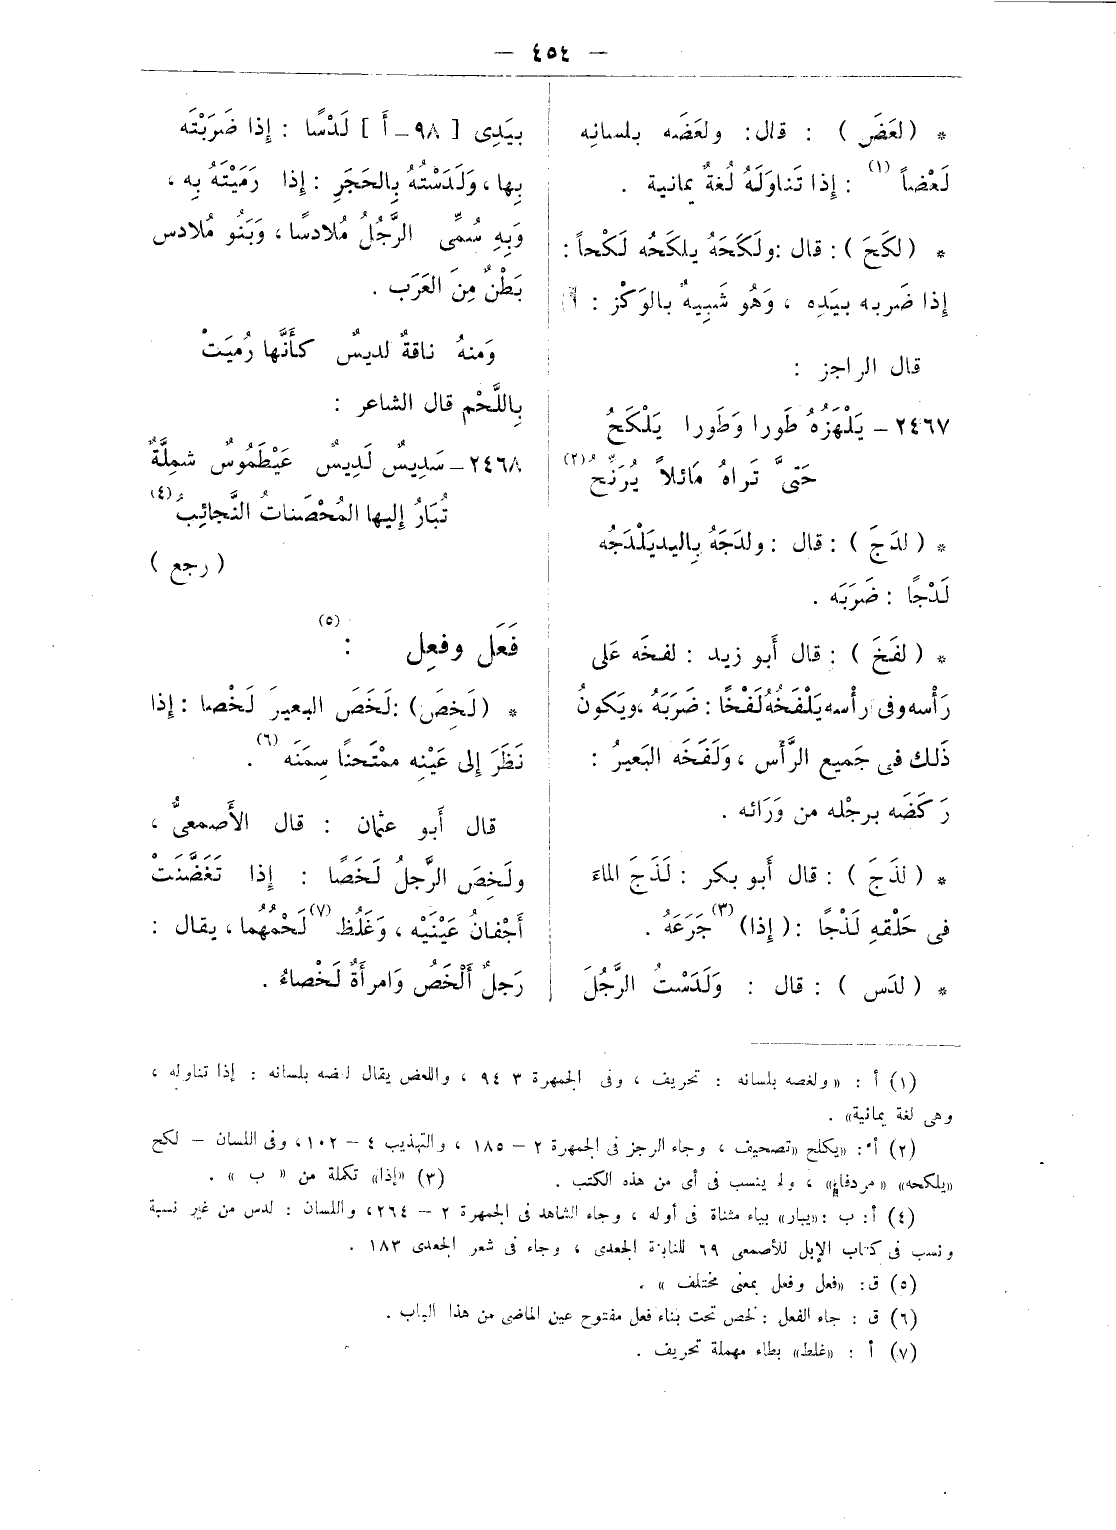 — ٤٥٤ —
* (لعَضَ) : قال: ولعَضَه بلسانِه
لَعْضاً (١) : إذا تَناوَلَهُ لُغةٌ يمانية .
* (لكَحَ) : قال :ولَكَحَهُ يلكَحُه لَكْحاً :
إذا ضَربه بيَدِه ، وَهُو شَبِيهٌ بالوَكْز :
قال الراجز :
٢٤٦٧ – يَلْهَزُهُ طَورا وَطَورا يَلْكَحُ
حَتىَّ تَراهُ مَائلاً يُرَنَّحُ (٢)
* (لدَجَ) : قال : ولدَجَهُ بِاليديَلْدَجُه
لَدْجًا : ضَرَبَه .
* (لفَخَ) : قال أَبو زيد : لفخَه عَلى
رَأْسه وفى رأْسه يَلْفَخُهُ لَفْخًا : ضَرَبَهُ ، ويَكونُ
ذَلك فى جَميع الرَّأْس ، وَلَفَخَه البَعيرُ :
رَكَضَه برجْله من وَرَائه .
* (لذَجَ) : قال أَبو بكر : لَذَجَ الماءَ
فى حَلْقهِ لَذْجًا : (إذا) (٣) جَرَعَهُ .
* (لدَس) : قال : وَلَدَسْتُ الرَّجُلَ
بيَدِى [ ٩٨ – أَ ] لَدْسًا : إِذا ضَرَبْتَه
بِها ، وَلَدَسْتُهُ بِالحَجَرِ : إِذا رَمَيْتَهُ بِه ،
وَبِهِ سُمِّى الرَّجُلُ مُلادسًا ، وَبَنُو مُلادس
بَطْنٌ مِنَ العَرَب .
وَمنهُ ناقةٌ لديسٌ كأَنَّها رُميَتْ
بِاللَّحْم قال الشاعر :
٢٤٦٨ – سَدِيسٌ لَدِيسٌ عَيْطَمُوسٌ شملَّةٌ
تُبَارُ إليها المُحْصَناتُ النَّجائِبُ (٤)
( رجع )
فَعَل وفعِل (٥) :
* (لَخِصَ) :لَخَصَ البعيرَ لَخْصا : إذا
نَظَرَ إلى عَيْنِه ممْتَحنًا سِمَنَه (٦) .
قال أَبو عثمان : قال الأَصمعىُّ ،
ولَخِصَ الرَّجلُ لَخَصًا : إِذا تَغَضَّنَتْ
أَجْفانُ عَيْنَيْه ، وَغَلُظ (٧) لَحْمُهُما ، يقال :
رَجلٌ أَلْخَصُ وَامرأَةٌ لَخْصاءُ .
(١) أ : «ولغصه بلسانه : تحريف ، وفى الجمهرة ٣ ٩٤ ، واللعض يقال لعضه بلسانه : إذا تناوله ،
وهى لغة يمانية» .
(٢) أ : «يكلح» تصحيف ، وجاء الرجز فى الجمهرة ٢ – ١٨٥ ، والتهذيب ٤ – ١٠٢ ، وفى اللسان – لكح
«يلكحه» ، ولم ينسب فى أى من هذه الكتب . (٣) «إذا» تكملة من « ب » .
(٤) أ : ب : «يبار» بياء مثناة فى أوله ، وجاء الشاهد فى الجمهرة ٢ – ٢٦٤ ، واللسان : لدس من غير نسبة
ونسب فى كتاب الإبل للأصمعى ٦٩ للنابغة الجعدى ، وجاء فى شعر الجعدى ١٨٣ .
(٥) ق : «فعل وفعل بمعنى مختلف » .
(٦) ق : جاء الفعل : لخص تحت بناء فعل مفتوح عين الماضى من هذا الباب .
(٧) أ : «غلط» بطاء مهملة تحريف .